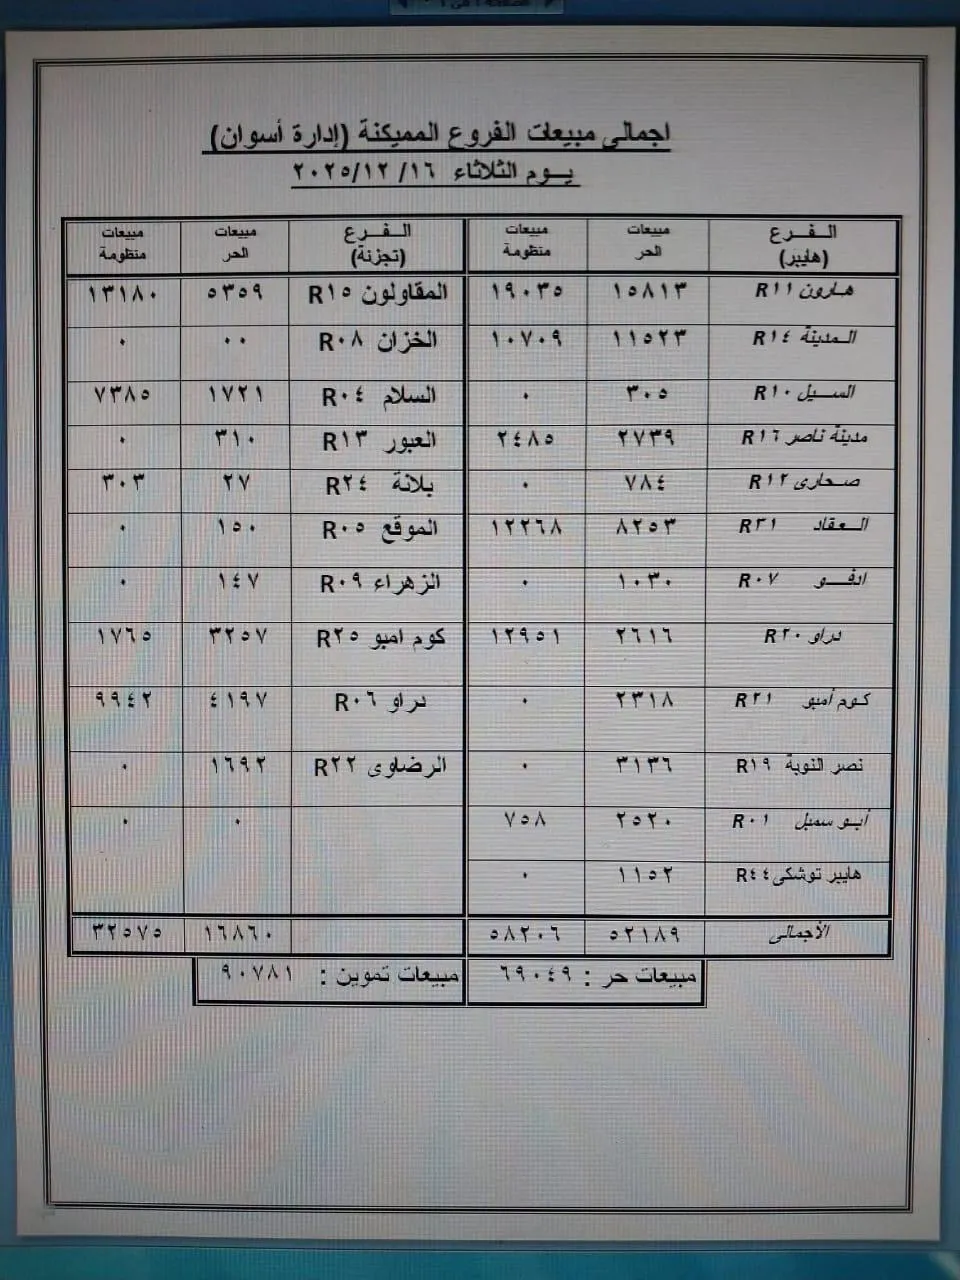 اجمالى مبيعات الفروع المميكنة (إدارة أسوان)
يـــوم الثلاثاء ١٦/ ٢٠٢٥/١٢
الـــفـــرع (هايبر) مبيعات الحر مبيعات منظومة الـــفـــرع (تجزئة) مبيعات الحر مبيعات منظومة
هـارون R١١ ١٥٨١٣ ١٩٠٣٥ المقاولون R١٥ ٥٣٥٩ ١٣١٨٠
الـمدينة R١٤ ١١٥٢٣ ١٠٧٠٩ الخزان R٠٨ ٠٠ ٠
السـيل R١٠ ٣٠٥ ٠ السلام R٠٤ ١٧٢١ ٧٣٨٥
مدينة ناصر R١٦ ٢٧٣٩ ٢٤٨٥ العبور R١٣ ٣١٠ ٠
صـحارى R١٢ ٧٨٤ ٠ بلانة R٢٤ ٢٧ ٣٠٣
الـعقاد R٣١ ٨٢٥٣ ١٢٢٦٨ الموقع R٠٥ ١٥٠ ٠
ادفـــو R٠٧ ١٠٣٠ ٠ الزهراء R٠٩ ١٤٧ ٠
دراو R٢٠ ٢٦١٦ ١٢٩٥١ كوم امبو R٢٥ ٣٢٥٧ ١٧٦٥
كـوم أمبو R٢١ ٢٣١٨ ٠ دراو R٠٦ ٤١٩٧ ٩٩٤٢
نصر النوبة R١٩ ٣١٣٦ ٠ الرضاوى R٢٢ ١٦٩٢ ٠
أبـو سمبل R٠١ ٢٥٢٠ ٧٥٨ ٠ ٠
هايبر توشكى R٤٤ ١١٥٢ ٠
الأجمالى ٥٢١٨٩ ٥٨٢٠٦ ١٦٨٦٠ ٣٢٥٧٥
مبيعات حر : ٦٩٠٤٩ مبيعات تموين : ٩٠٧٨١